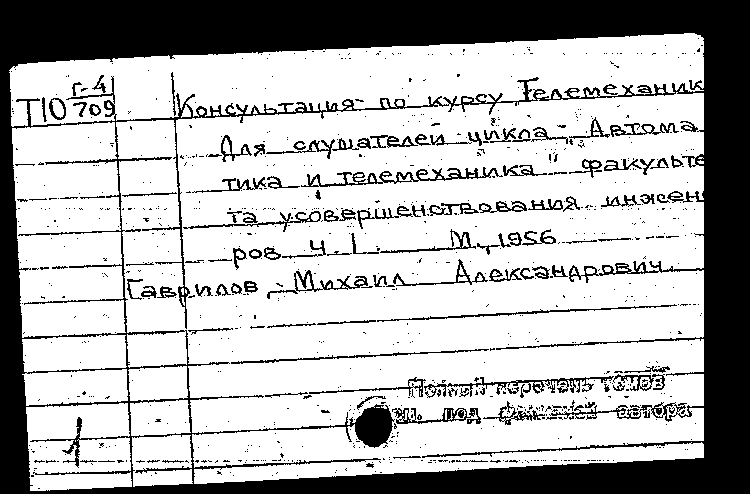 Т10 Г-4/709
Консультация по курсу Телемеханик
Для слушателей цикла „Автома
тика и телемеханика" факульте
та усовершенствования инжене
ров Ч. I. М., 1956
Гаврилов, Михаил Александрович.
Полный перечень томов
см. под фамилией автора
1